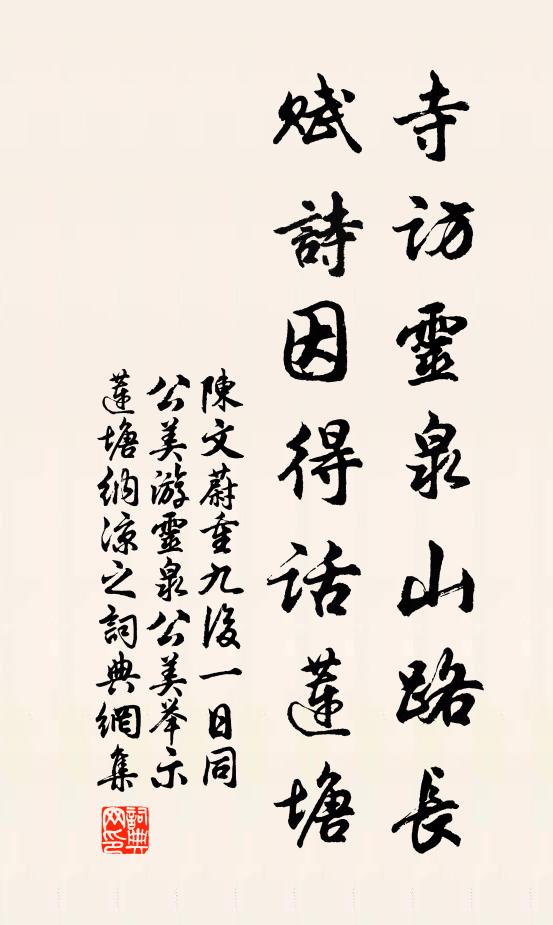 寺訪靈泉山路長
賦詩因得話蓮塘
陳文蔚重九後一日同
公美游靈泉公美舉示
蓮塘納凉之詞典網集
詞典
网印